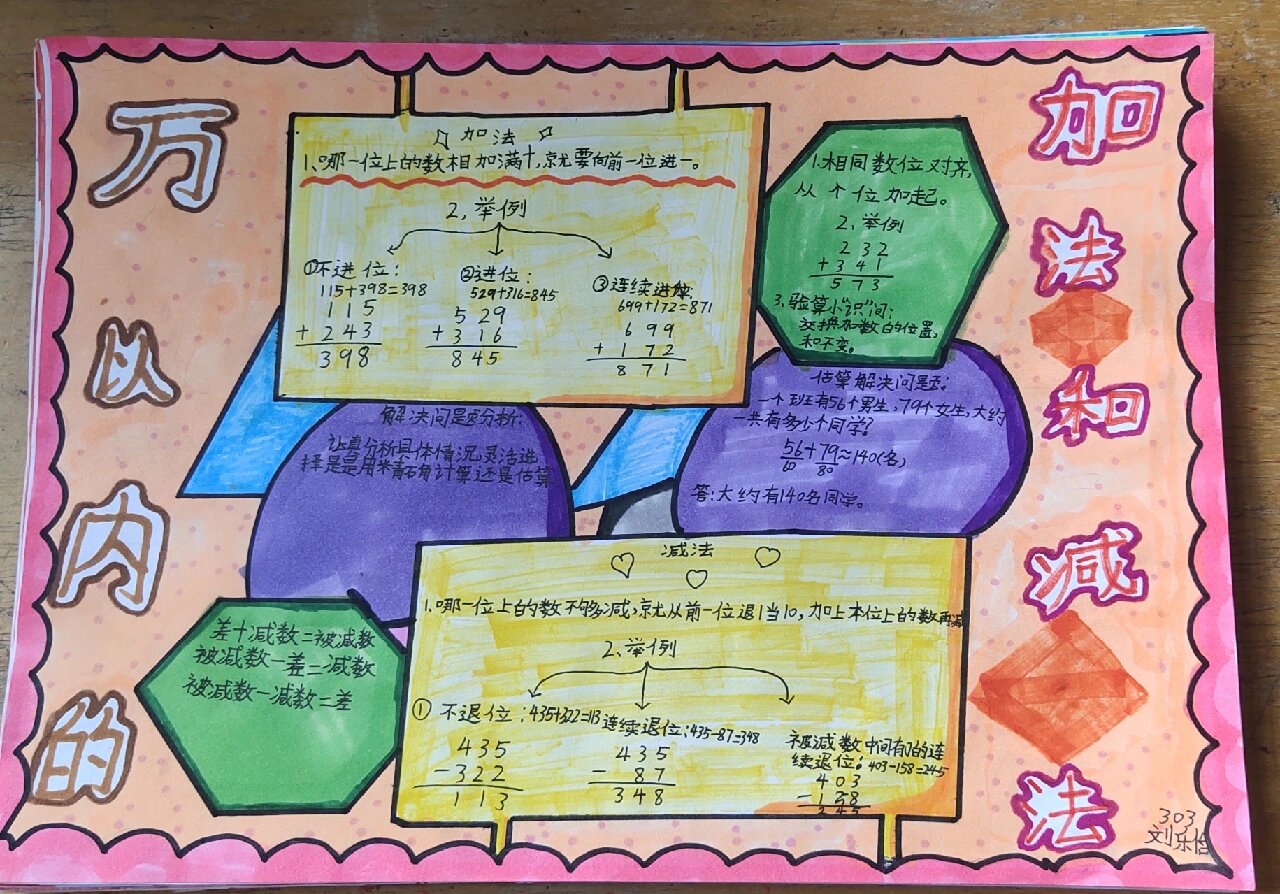 万以内的
加法和减法
加法
1、哪一位上的数相加满十,就要向前一位进一。
2,举例
①不进位:
115+398=398
115
+243
398
②进位:
529+316=845
529
+316
845
③连续进位:
699+172=871
699
+172
871
1.相同数位对齐,
从个位加起。
2,举例
232
+341
573
3、验算小"识"间:
交换加数的位置,
和不变。
解决问题分析:
认真分析具体情况灵活选
择是用精确计算还是估算
估算解决问题:
一个班有56个男生,79个女生,大约
一共有多少个同学?
56+79≈140(名)
60 80
答:大约有140名同学。
差+减数=被减数
被减数-差=减数
被减数-减数=差
减法
1、哪一位上的数不够减,就从前一位退1当10,加上本位上的数再减
2、举例
① 不退位:435+322=113
435
-322
113
连续退位:435-87=348
435
-87
348
被减数中间有0的连
续退位:403-158=245
403
-158
245
303
刘乐怡